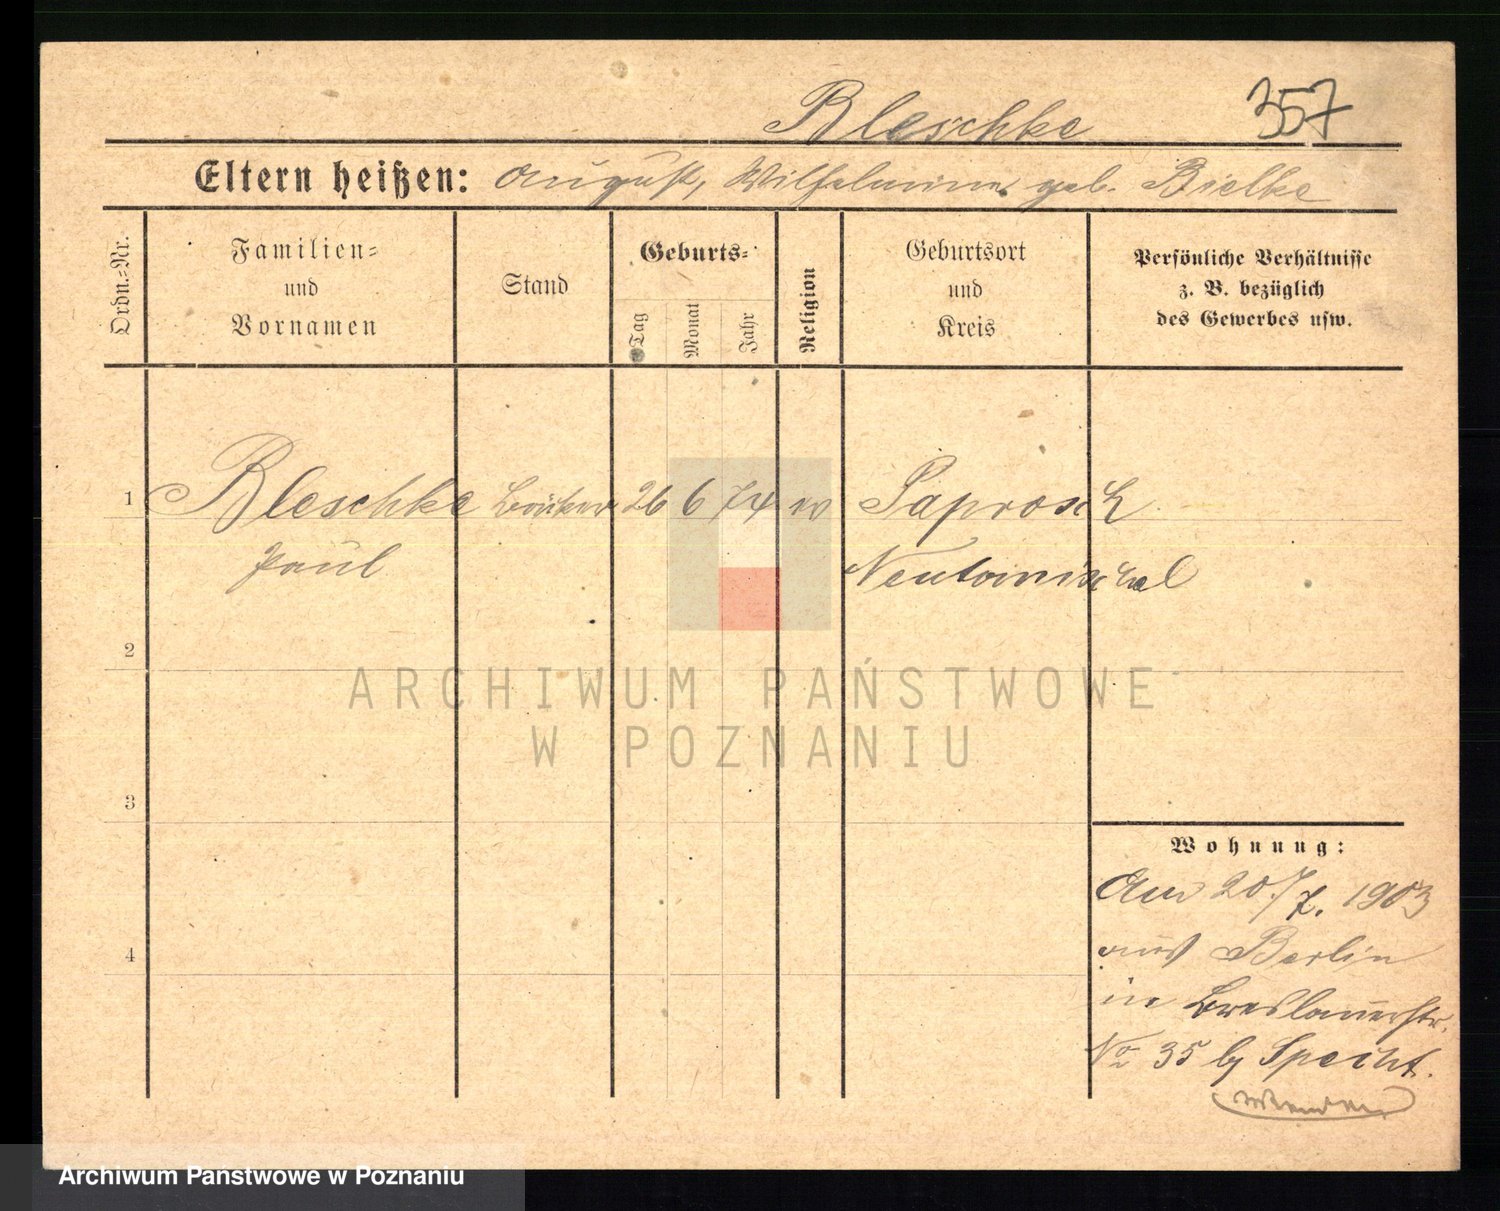 Bleschke 357
Eltern heißen: August, Wilhelmine geb. Bielke
Ordn.=Nr.
Familien=
und
Vornamen
Stand
Geburts=
Tag
Monat
Jahr
Religion
Geburtsort
und
Kreis
Persönliche Verhältnisse
z. B. bezüglich
des Gewerbes usw.
1 Bleschke 26 6 74 ev Paprosch
Paul Neutomischel
2
ARCHIWUM PAŃSTWOWE
W POZNANIU
3
Wohnung:
Am 20./7. 1903
4
aus Berlin
in Breslauerstr.
No 35 by Specht.
Archiwum Państwowe w Poznaniu